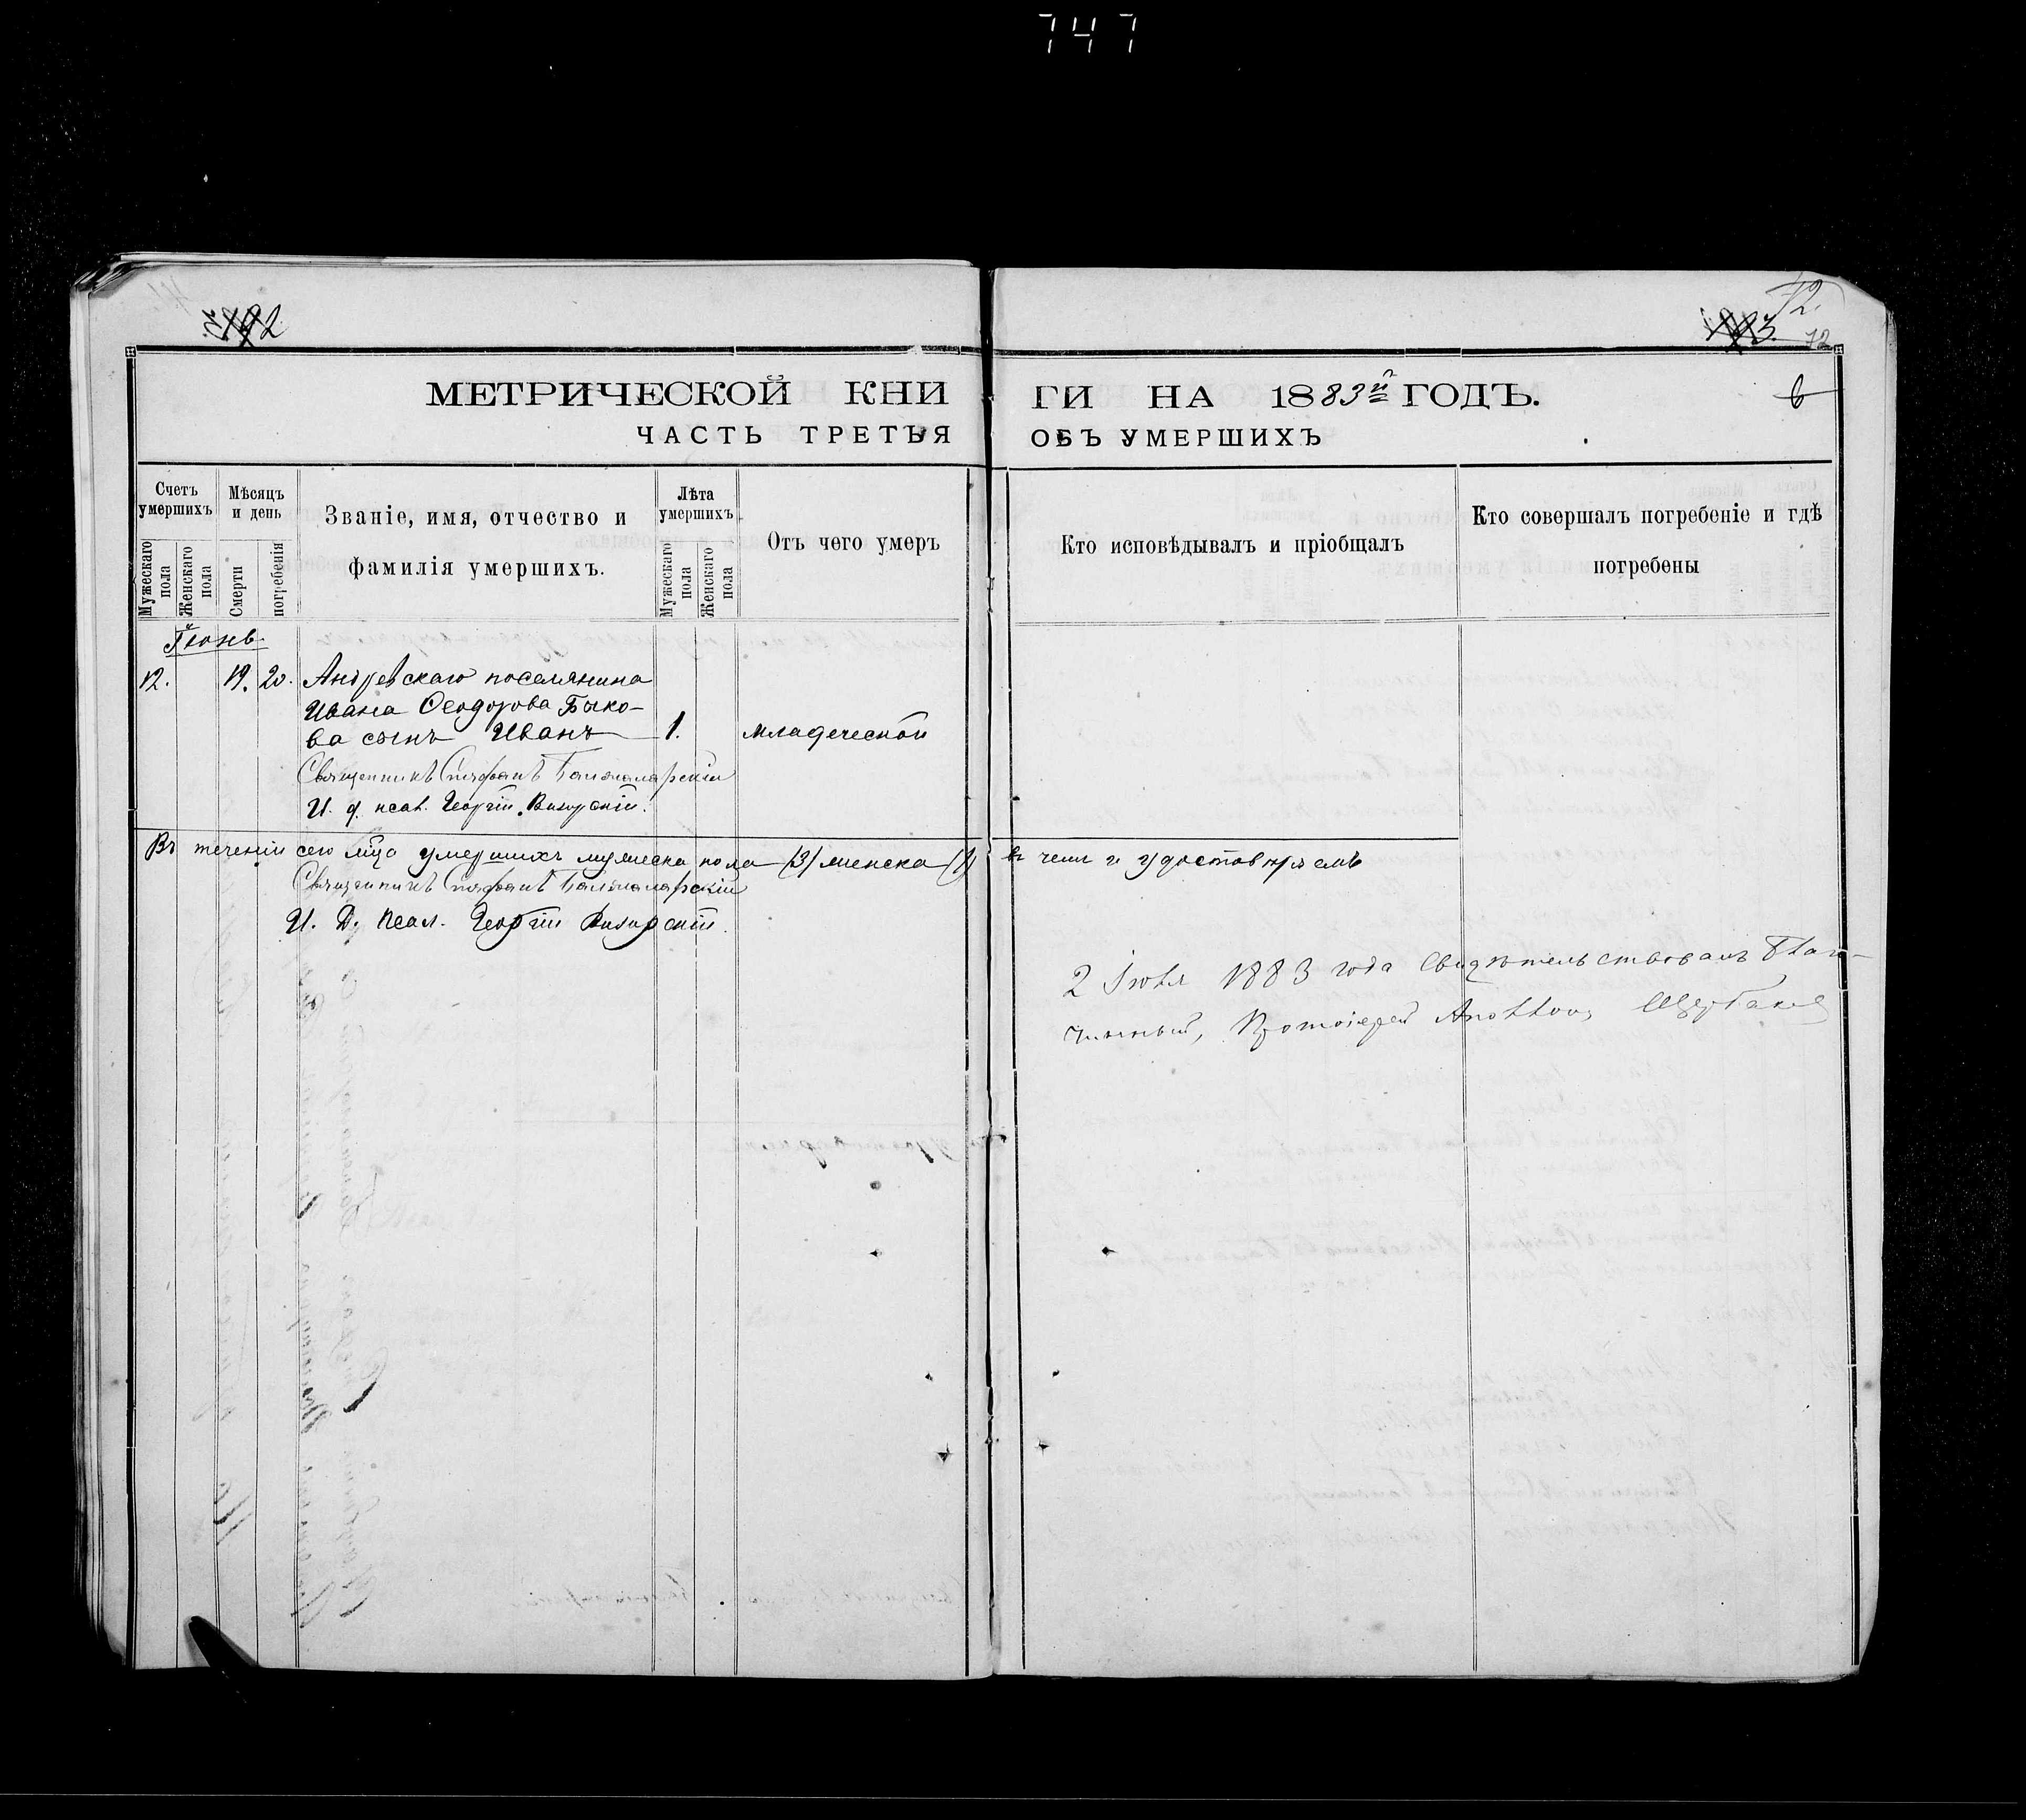 747
192
72
193
72
МЕТРИЧЕСКОЙ КНИ ГИ НА 1883й ГОДЪ.
ЧАСТЬ ТРЕТЬЯ ОБЪ УМЕРШИХЪ
Счетъ умершихъ
Мужескаго пола
Женскаго пола
Мѣсяцъ и день
Смерти
погребенія
Званіе, имя, отчество и
фамилія умершихъ.
Лѣта умершихъ
Мужескаго пола
Женскаго пола
Отъ чего умеръ
Кто исповѣдывалъ и пріобщалъ
Кто совершалъ погребеніе и гдѣ
погребены
Іюнь
12. 19. 20. Андревскаго поселянина
Ивана Ѳеодорова Быко-
ва сынъ Иванъ 1. младеческой
Священникъ Стефанъ
И. д. псал. Георгій
Въ теченіи сего м͠ца умершихъ мужеска пола (3) женска (1) въ чемъ и удостовѣряемъ
Священникъ Стефанъ
И. Д. Псал. Георгій
2 Іюля 1883 года свидѣтельствовалъ Благо-
чинный, Протоіерей